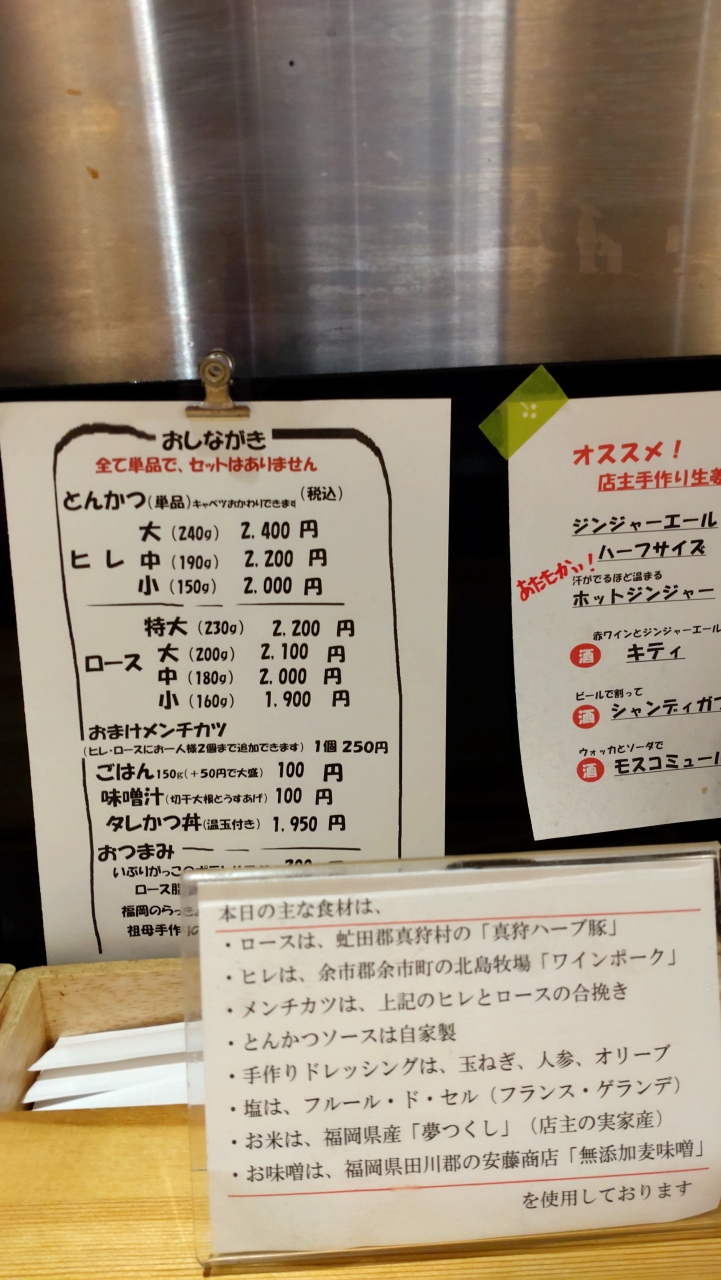 おしながき
全て単品で、セットはありません
とんかつ(単品)キャベツおかわりできます(税込)
大(240g) 2.400円
ヒレ 中(190g) 2.200円
小(150g) 2.000円
特大(230g) 2.200円
ロース 大(200g) 2.100円
中(180g) 2.000円
小(160g) 1.900円
おまけメンチカツ
(ヒレ・ロースにお一人様2個まで追加できます) 1個 250円
ごはん150g(+50円で大盛) 100円
味噌汁(切干大根とうすあげ) 100円
タレかつ丼(温玉付き) 1.950円
おつまみ
いぶりがっこ
ロース
福岡のらっ
祖母手作
オススメ!
店主手作り生姜
ジンジャーエール
ハーフサイズ
あたたかい!
汗がでるほど温まる
ホットジンジャー
赤ワインとジンジャーエール
酒 キティ
ビールで割って
酒 シャンディガフ
ウォッカとソーダで
酒 モスコミュール
本日の主な食材は、
・ロースは、虻田郡真狩村の「真狩ハーブ豚」
・ヒレは、余市郡余市町の北島牧場「ワインポーク」
・メンチカツは、上記のヒレとロースの合挽き
・とんかつソースは自家製
・手作りドレッシングは、玉ねぎ、人参、オリーブ
・塩は、フルール・ド・セル(フランス・ゲランデ)
・お米は、福岡県産「夢つくし」(店主の実家産)
・お味噌は、福岡県田川郡の安藤商店「無添加麦味噌」
を使用しております